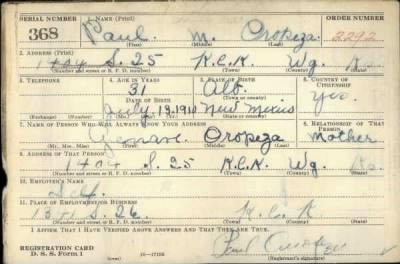 SERIAL NUMBER 1. NAME (Print) ORDER NUMBER
368 Paul M. Oropeza 2292
(First) (Middle) (Last)
2. ADDRESS (Print)
1404 S. 25 K.C.K. Wy. Ks.
(Number and street or R. F. D. number) (Town) (County) (State)
3. TELEPHONE 4. AGE IN YEARS 5. PLACE OF BIRTH 6. COUNTRY OF CITIZENSHIP
31 Alb. Yes.
DATE OF BIRTH (Town or county)
July 19, 1910 New Mexico
(Exchange) (Number) (Mo.) (Day) (Yr.) (State or country)
7. NAME OF PERSON WHO WILL ALWAYS KNOW YOUR ADDRESS 8. RELATIONSHIP OF THAT PERSON
Oropeza Mother
(Mr., Mrs., Miss) (First) (Middle) (Last)
9. ADDRESS OF THAT PERSON
1404 S. 25 K.C.K. Wy. Ks.
(Number and street or R. F. D. number) (Town) (County) (State)
10. EMPLOYER'S NAME
Self
11. PLACE OF EMPLOYMENT OR BUSINESS
S. 26 K.C.K
(Number and street or R. F. D. number) (Town) (County) (State)
I AFFIRM THAT I HAVE VERIFIED ABOVE ANSWERS AND THAT THEY ARE TRUE.
REGISTRATION CARD
D. S. S. Form 1 16—17105 Paul Oropeza
(Registrant's signature)